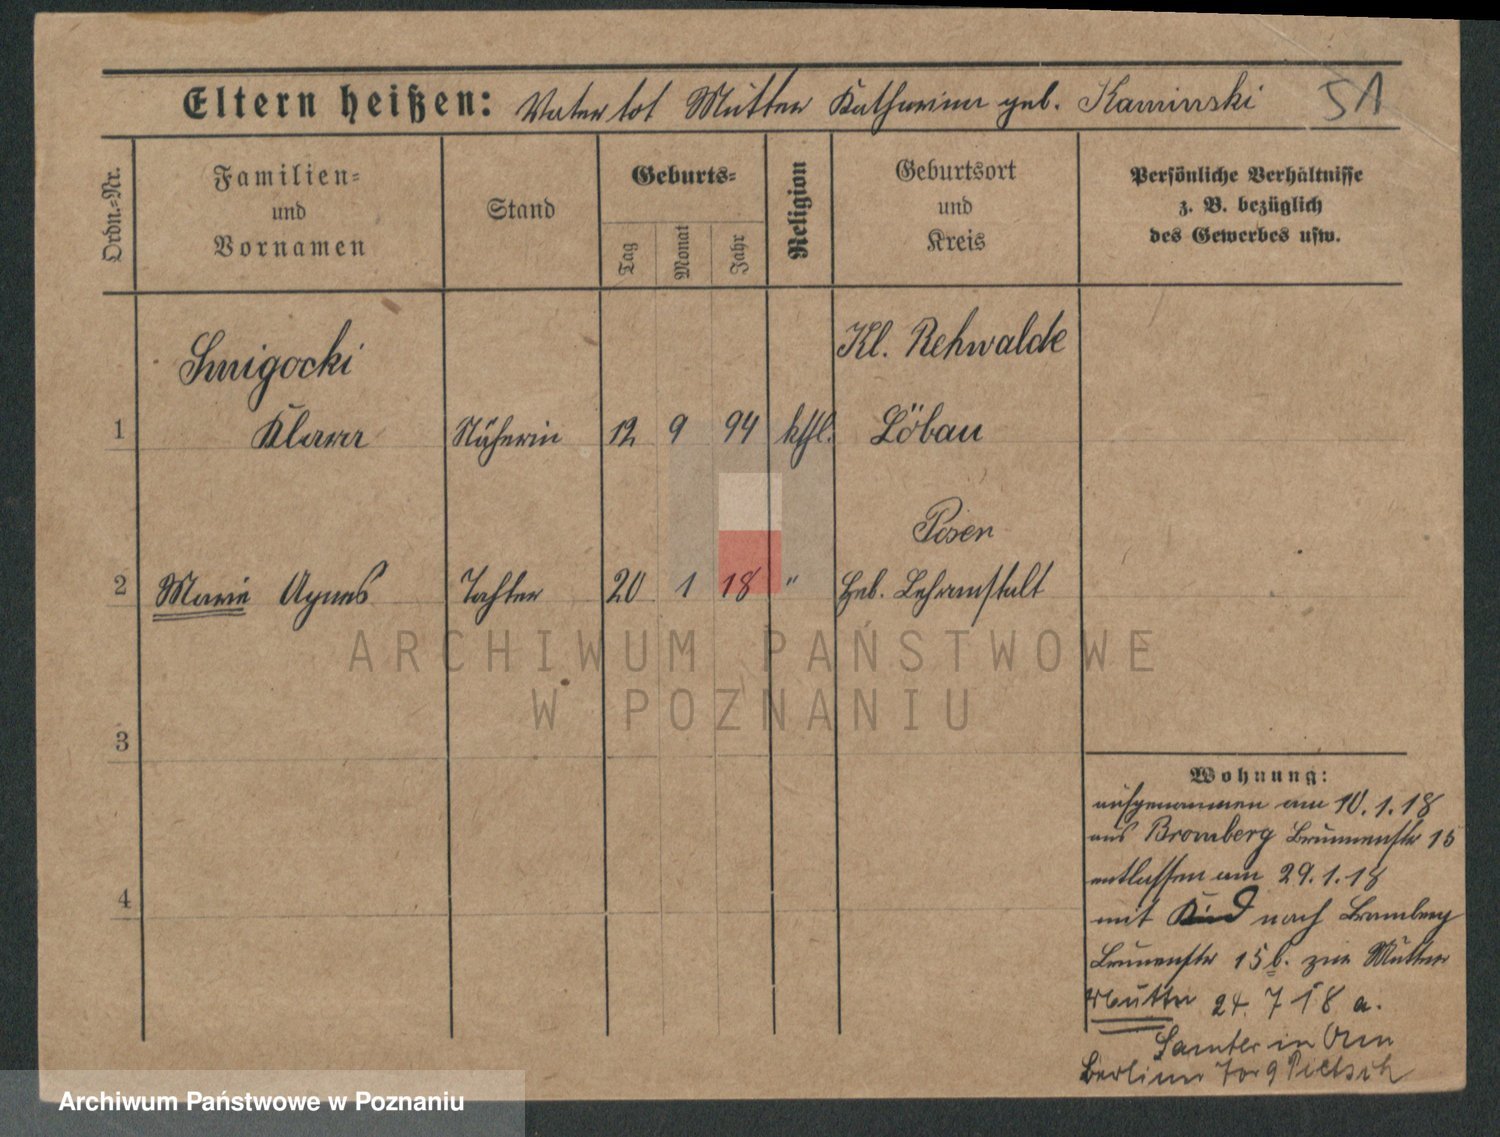 Eltern heißen: Vater tot Mutter Katharina geb. Kaminski 51
Ordn.=Nr.
Familien=
und
Vornamen
Stand
Geburts=
Tag
Monat
Jahr
Religion
Geburtsort
und
Kreis
Persönliche Verhältnisse
z. B. bezüglich
des Gewerbes usw.
Smigocki
Kl. Rehwalde
1 Klara Näherin 12 9 94 kthl. Löbau
Posen
2 Marie Agnes Tochter 20 1 18 " Heb. Lehranstalt
ARCHIWUM PAŃSTWOWE
W POZNANIU
3
4
Wohnung:
aufgenommen am 10.1.18
aus Bromberg Brunnenstr 15
entlassen am 29.1.18
mit Kind nach Bromberg
15 b. zur Mutter
Mutter 24. 7 18 a.
Samter in
Berliner Tor 9 Pietsch
Archiwum Państwowe w Poznaniu